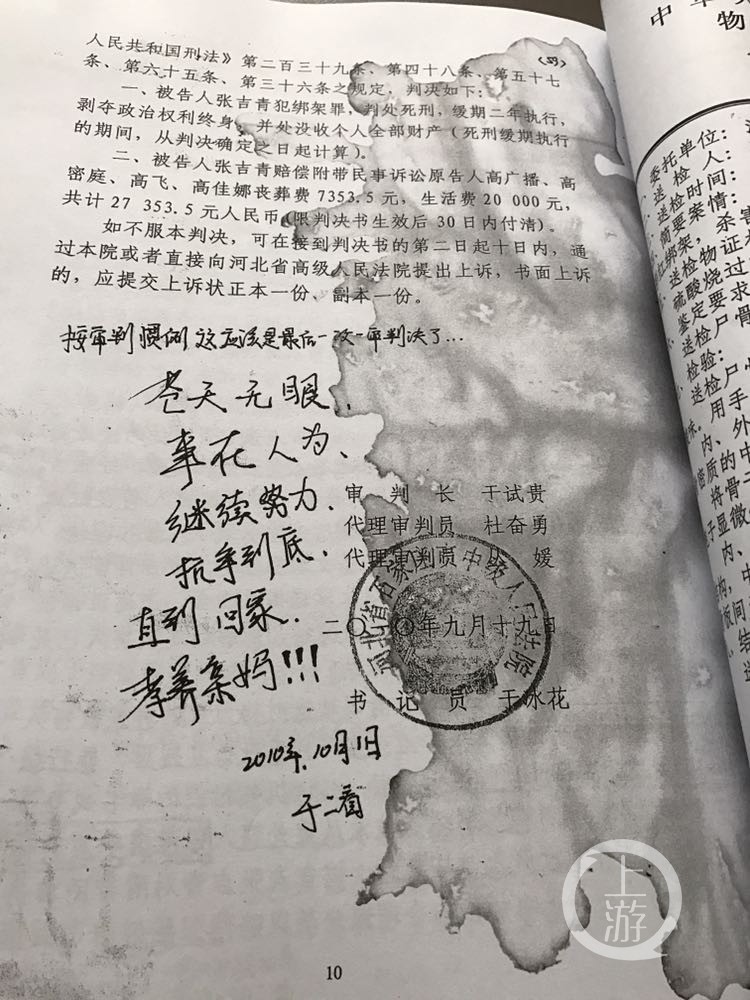 (59)
人民共和国刑法》第二百三十九条、第四十八条、第五十七
条、第六十五条、第三十六条之规定，判决如下：
一、被告人张吉青犯绑架罪，判处死刑，缓期二年执行，
剥夺政治权利终身，并处没收个人全部财产（死刑缓期执行
的期间，从判决确定之日起计算）。
二、被告人张吉青赔偿附带民事诉讼原告人高广播、高
密庭、高飞、高佳娜丧葬费 7353.5 元，生活费 20 000 元，
共计 27 353.5 元人民币(限判决书生效后 30 日内付清)。
如不服本判决，可在接到判决书的第二日起十日内，通
过本院或者直接向河北省高级人民法院提出上诉，书面上诉
的，应提交上诉状正本一份、副本一份。
按审判惯例，这应该是最后一次一审判决了...
苍天无眼，
事在人为、
继续努力，
抗争到底，
直到回家，
孝养亲妈!!!
审 判 长 干试贵
代理审判员 杜奋勇
代理审判员 媛
河北省石家庄市中级人民法院
二〇一〇年九月十九日
书 记 员 于冰花
2010年10月1日
于二看
10
上游
物
委托单位：
送检人：
送检时间：
简要案情：
红绑架，杀害
送检物证
硫酸烧过
鉴定要求
送检尸骨
检验：
送检尸
用手
内、外
密质的中
将骨
于显微
内、
构，中
板间
结